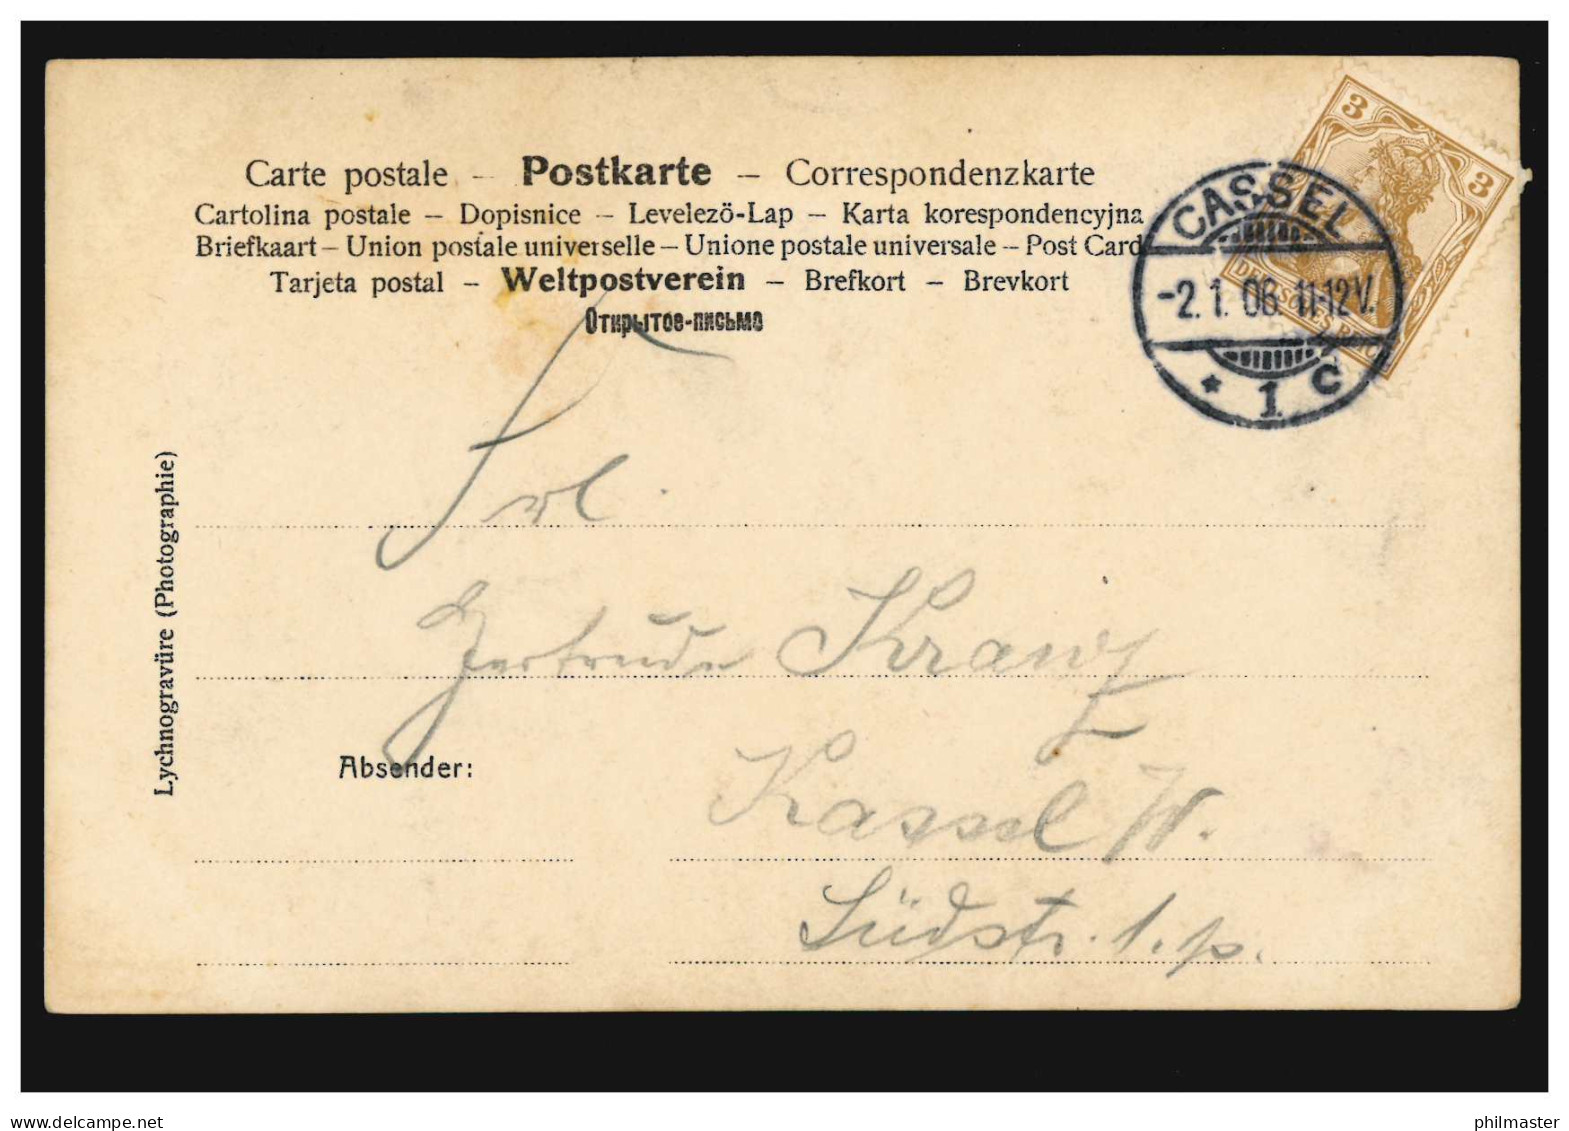 Carte postale – Postkarte – Correspondenzkarte
Cartolina postale – Dopisnice – Levelezö-Lap – Karta korespondencyjna
Briefkaart – Union postale universelle – Unione postale universale – Post Card
Tarjeta postal – Weltpostverein – Brefkort – Brevkort
Открытое-письмо
3
3
DEUTSCHES REICH
CASSEL
-2.1.06.11-12V.
* 1 c
Frl.
Gertrude Kranz
Kassel W.
Südstr. 1. p.
Absender:
Lychnogravüre (Photographie)
www.delcampe.net
philmaster